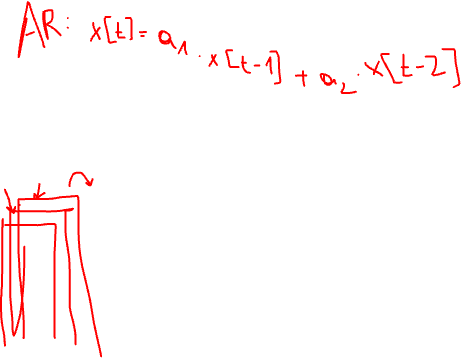 AR: x[t] = a₁ · x[t-1] + a₂ · x[t-2]